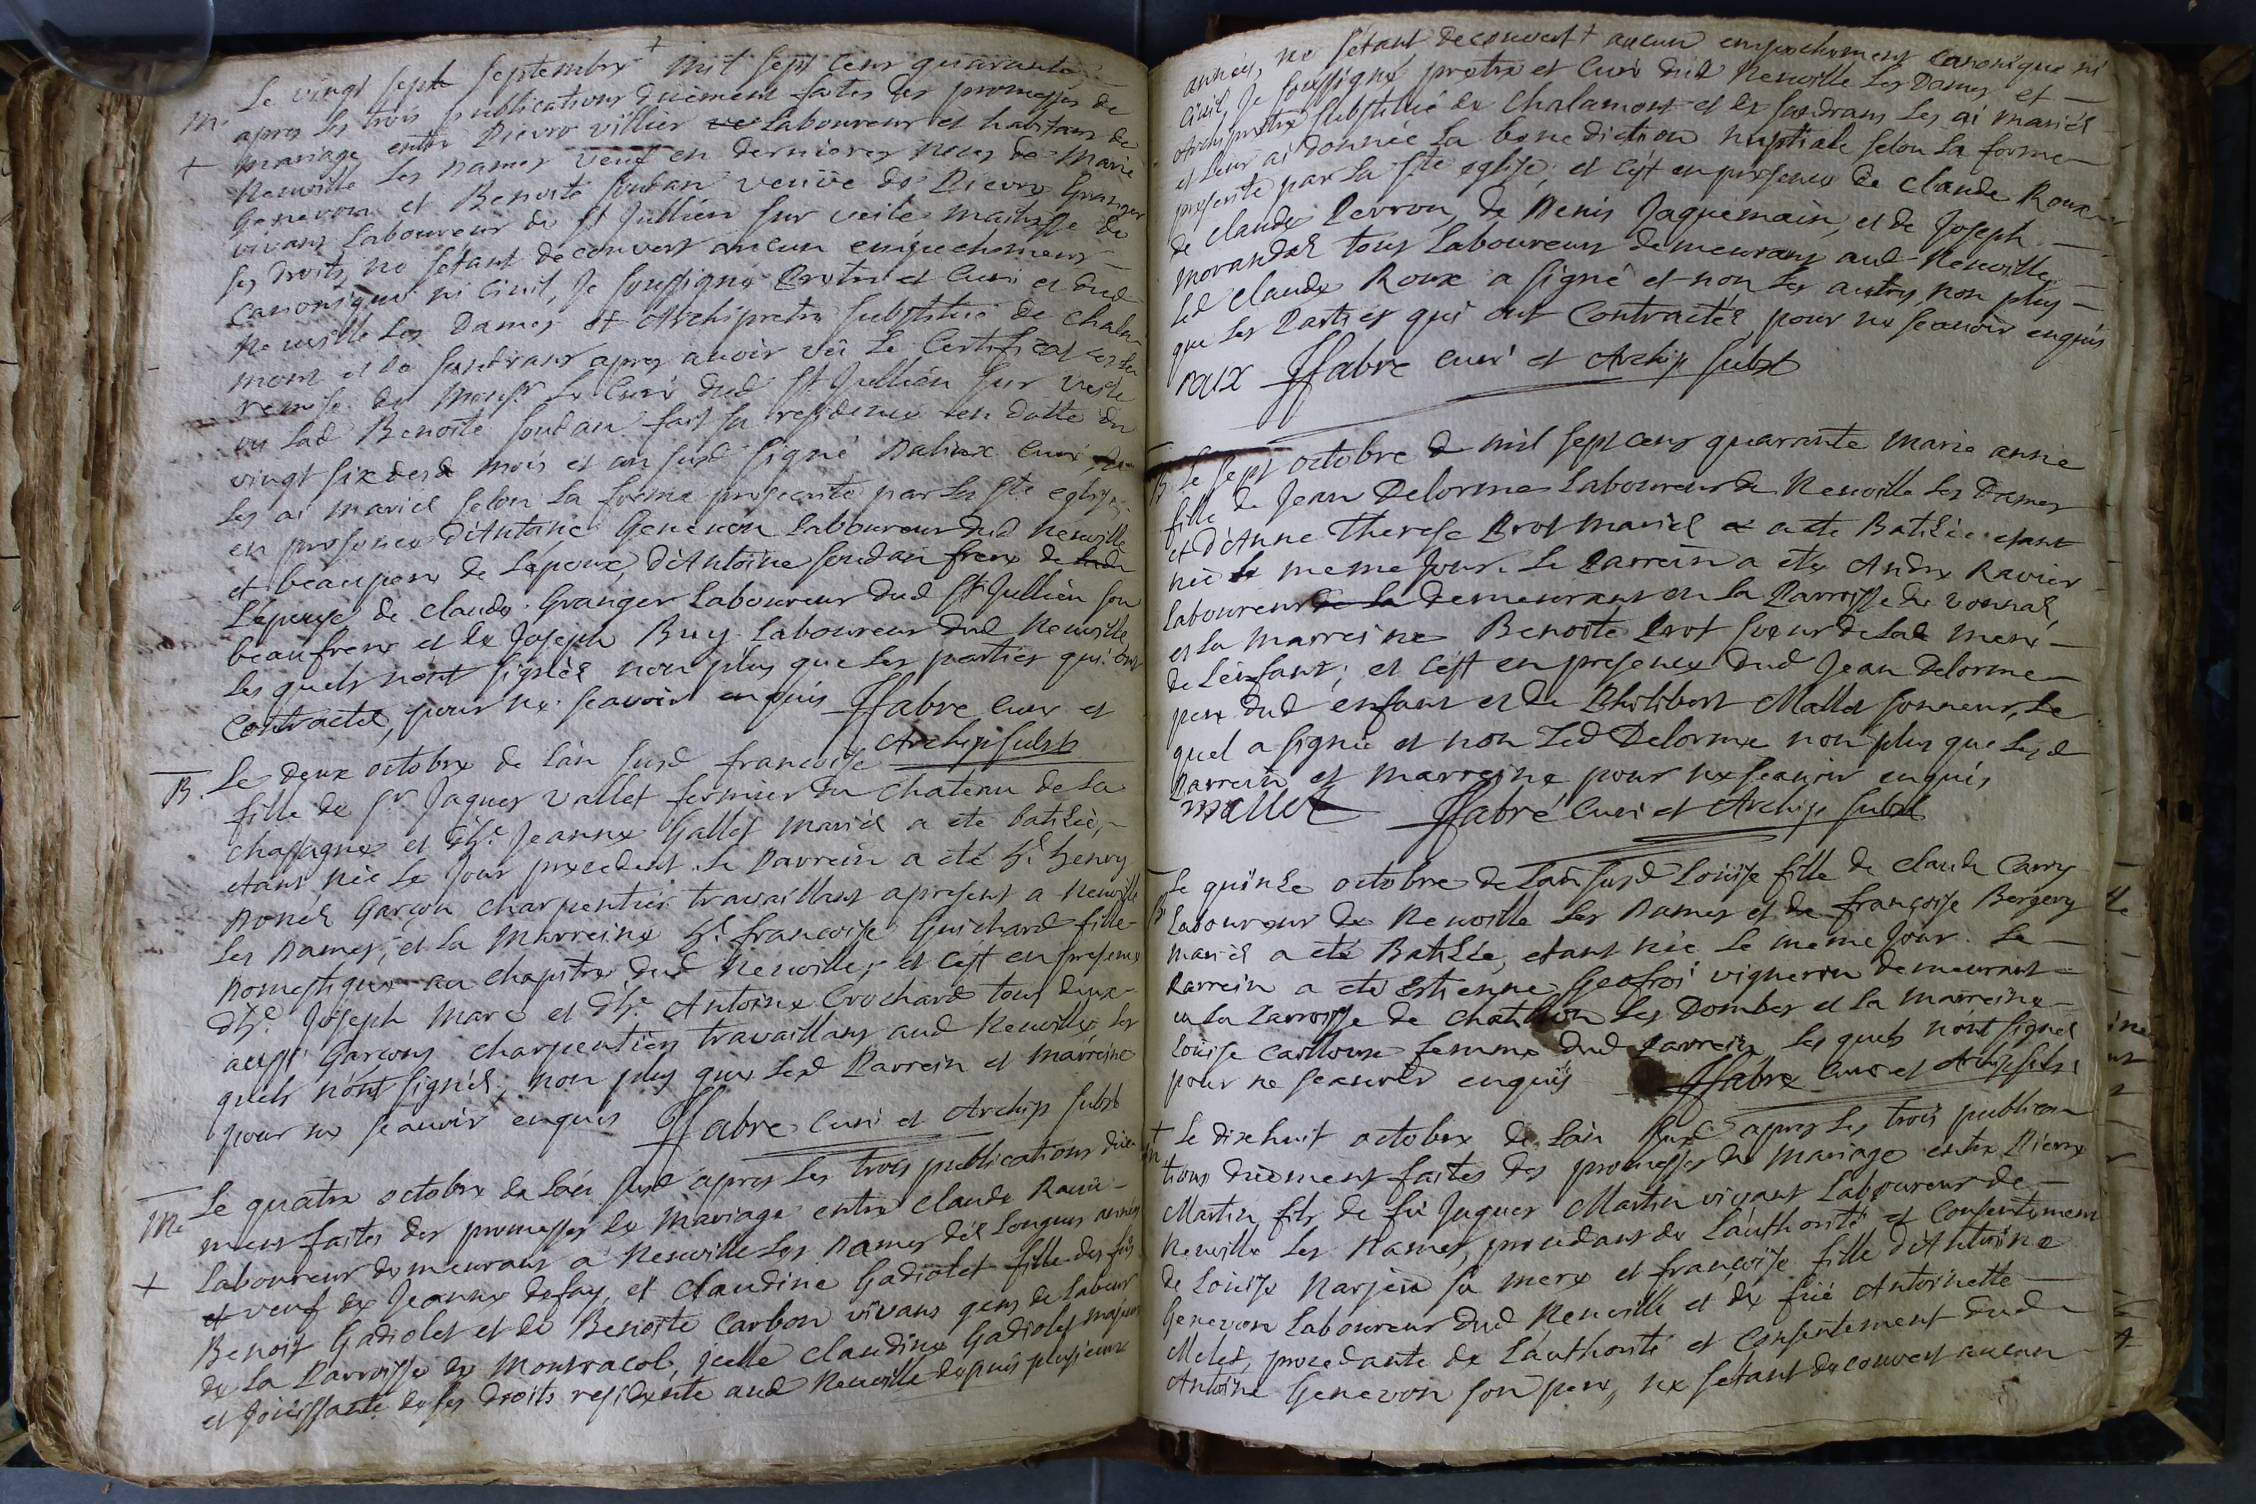 Le vingt sept septembre mil sept cens quarante
m. apres les trois publications düement faites des promesses de
+ mariage entre Pierre villier laboureur et habitans de
Neuville les Dames veuf en dernieres noces de Marie
Genevon et Benoite soudan veuve de Pierre Granger
vivant Laboureur de st Jullien sur veile maitresse de
ses droits, ne s'étant decouvert aucun empechement
Canonique ni Civil, Je soussigné Pretre et Curé dud
Neuville les Dames et Archipretre substitué de Chala-
mont et de sandrans apres avoir vû le Certificat de
remise de Monsr le Curé dud st Jullien sur veile
ou lad Benoite soudan fait sa residence en datte du
vingt six desd mois et an susd signé curé
les ai mariés selon la forme prescrite par la ste eglise,
en presence d'Antoine Genevon laboureur dud Neuville
et beaupere de l'epoux, d'Antoine soudan frere de
l'epouse de claude Granger laboureur dud st Jullien son
beaufrere et de Joseph Buy laboureur dud Neuville,
les quels n'ont signés non plus que les parties qui ont
contracté, pour ne scavoir enquis ffabre curé et
Archip subst
B. Le deux octobre de l'an susd francoise
fille de sr Jaques vallet fermier du chateau de la
chassagne et d'h.e Jeanne Gallet mariés a eté batisée,
etant née le jour precedent. Le Parrein a eté h.e henry
Garçon charpentier travaillant apresent a Neuville
les Dames, et la Marreine h.e francoise Guichard fille
Domestique au chapitre dud Neuville, et c'est en presence
d'h.e Joseph Marc et d'h.e Antoine Crochard tous deux
aussi Garçons charpentiers travaillans aud Neuville, les
quels n'ont signés, non plus que lesd Parrein et marreine
pour ne scavoir enquis ffabre curé et Archip subst
Le quatre octobre de l'an susd apres les trois publications düe
m. ment faites des promesses de Mariage entre claude Ravi-
Laboureur demeurant a Neuville les Dames dés longues années
+ et veuf de Jeanne dufay, et claudine Gadiolet fille des fûs
Benoit Gadiolet et de Benoite Carbon vivans gens de labeur
de la Parroisse de Montracol, jcelle claudine Gadiolet majeure
et joüissante de ses droits residente aud Neuville depuis plusieurs
années, ne s'étant decouvert + aucun empechement canonique ni
Civil, Je soussigné pretre et Curé dud Neuville les Dames et
Archipretre substitué de Chalamont et de sandrans les ai mariés
et leur ai donnée la benediction nuptiale selon la forme
prescrite par la ste eglise, et c'est en presence de claude Roux
de claude Perron, de Denis Jaquemain, et de Joseph
morandat tous laboureurs demeurans aud Neuville
Led claude Roux a signé et non les autres non plus
que les Parties qui ont Contractés, pour ne scavoir enquis
roux ffabre curé et Archip subst
B. Le sept octobre mil sept cens quarante marie anne
fille de Jean Delorme Laboureur de Neuville les Dames
et d'Anne Therese Prost mariés a eté Batisée etant
née le meme jour. Le Parrein a eté Andre Ravier
laboureur demeurant en la Parroisse de vonnas,
et la marreine Benoite Prost soeur de lad mere
de l'enfant; et c'est en presence dud Jean Delorme
pere dud enfant et de Philibert Mallet sonneur, le
quel a signé et non Led Delorme non plus que lesd
Parrein et marreine pour ne scavoir enquis,
mallet ffabre curé et Archip subst
Le quinze octobre de l'an susd Loüise fille de claude Carry
B. Laboureur de Neuville les Dames et de françoise Bergery
mariés a eté Batisée, etant née le meme jour. Le
Parrein a eté Estienne Geofroi vigneron demeurant
en la Parroisse de Chatillon les Dombes et la marreine
Loüise Cailloux femme dud parrein, les quels n'ont signés
pour ne scavoir enquis ffabre curé et Archip subst
+ Le dixhuit octobre de l'an susd apres les trois publica-
m tions düement faites des promesses de mariage entre Pierre
Martin fils de fû Jaques Martin vivant Laboureur de
Neuville les Dames, procedant de l'authorité et consentement
de Loüise Narjeon sa mere et françoise fille d'Antoine
Genevon laboureur dud Neuville et de füe Antoinette
Melet, procedante de l'authorité et consentement dud
Antoine Genevon son pere, ne s'etant decouvert aucun